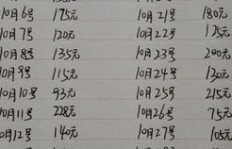 10月6号 175元 10月21号 180元
10月7号 120元 10月22号 175元
10月8号 135元 10月23号 200元
10月9号 115元 10月24号 130元
10月10号 93元 10月25号 215元
10月11号 228元 10月26号 75元
10月12号 140元 10月27号 105元